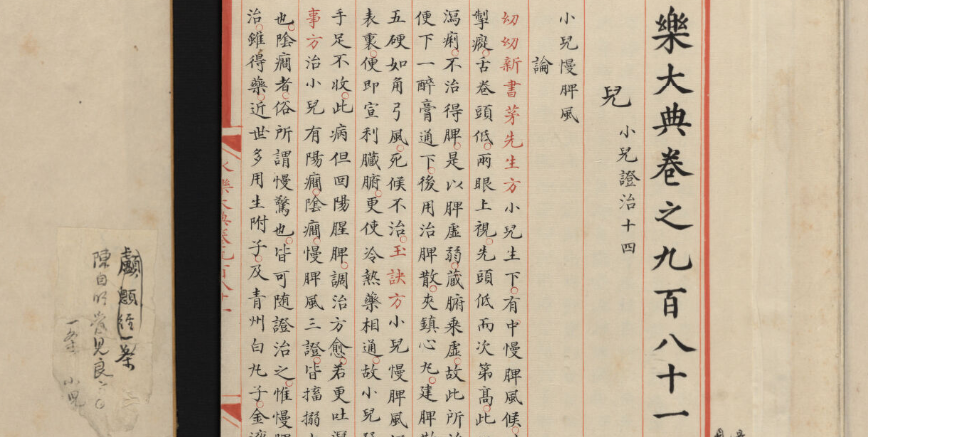 樂大典卷之九百八十一
兒 小兒證治十四
小兒慢脾風
論
幼幼新書茅先生方小兒生下有中慢脾風候
掣瘲舌卷頭低兩眼上視先頭低而次第高此
瀉痢不治得脾是以脾虛弱藏腑乘虛故此所
便下一醉膏通下後用治脾散夾鎮心丸建脾散
五硬如角弓風死候不治玉訣方小兒慢脾風
表裏便即宣利臟腑更使冷熱藥相通故小兒
手足不收此病但回陽腥脾調治方愈若更吐瀉
事方治小兒有陽癎陰癎慢脾風三證皆搐搦
也陰癎者俗所謂慢驚也皆可隨證治之惟慢脾
治雖得藥近世多用生附子及青州白丸子金液
永樂大典卷九百八十一
顱顖經一条
陳自明
小兒